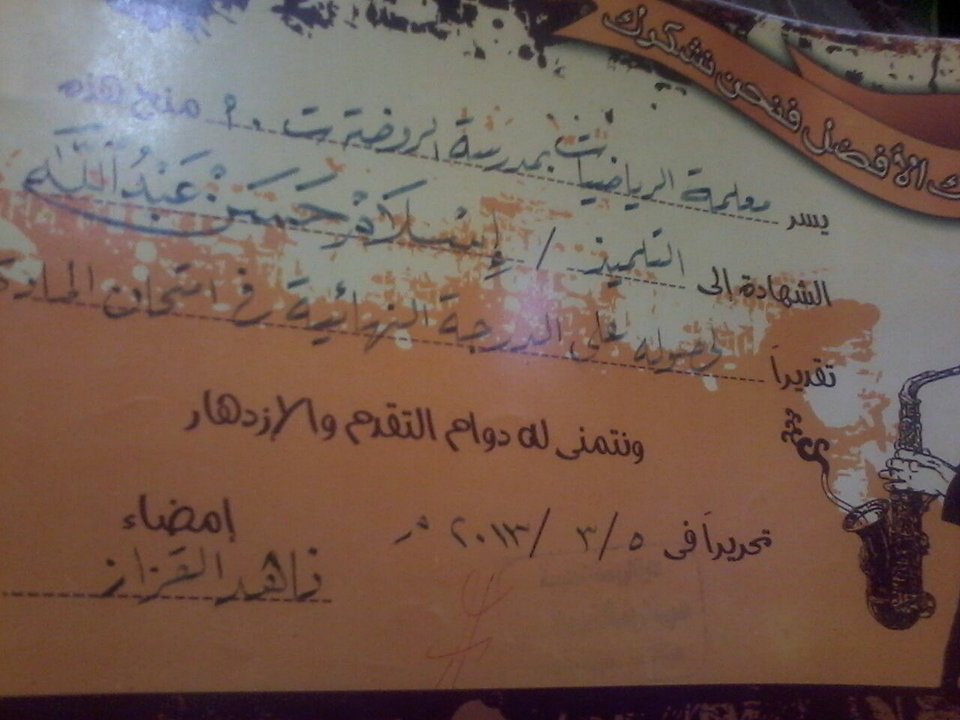 ك الأفضل فنحن نشكرك
يسر معلمة الرياضيات بمدرسة الروضة ت ٠٩ منح هذه
الشهادة إلى التلميذ / إسلام حسن عبد الله
تقديراً لحصوله على الدرجة النهائية في امتحان المادة
ونتمنى له دوام التقدم والإزدهار
تحريراً في ٥ / ٣ / ٢٠١٣ م
إمضاء
ناهد القزاز